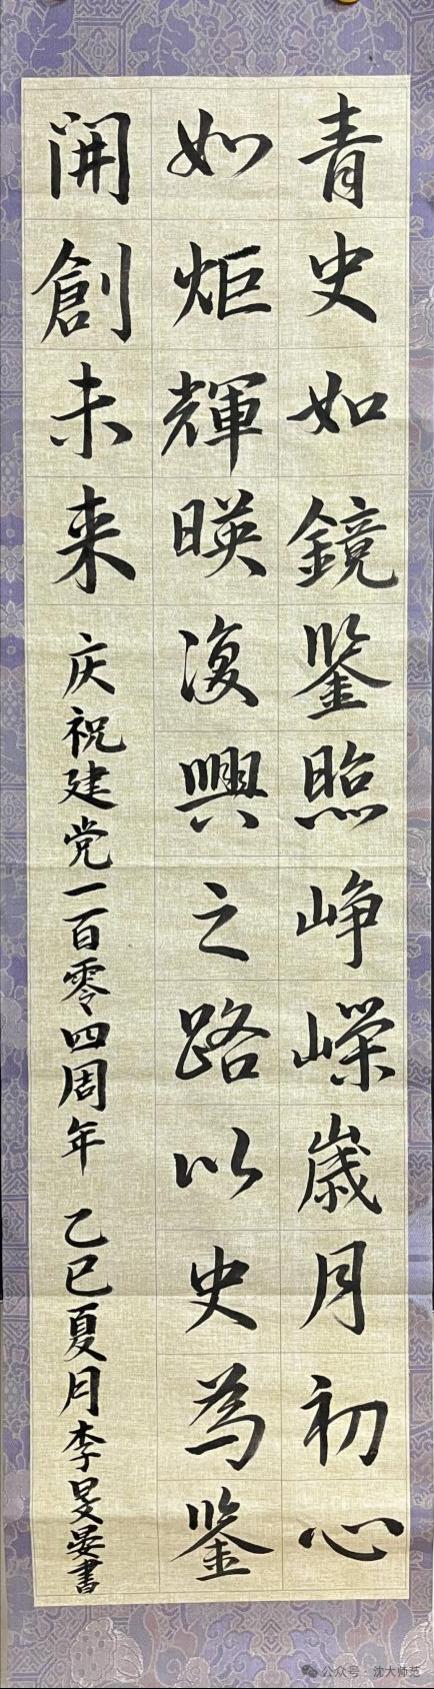 青史如鏡鉴照峥嶸歲月初心
如炬輝暎復興之路以史為鉴
開創未来 庆祝建党一百零四周年 乙巳夏月李旻晏書
公众号：沈大师范